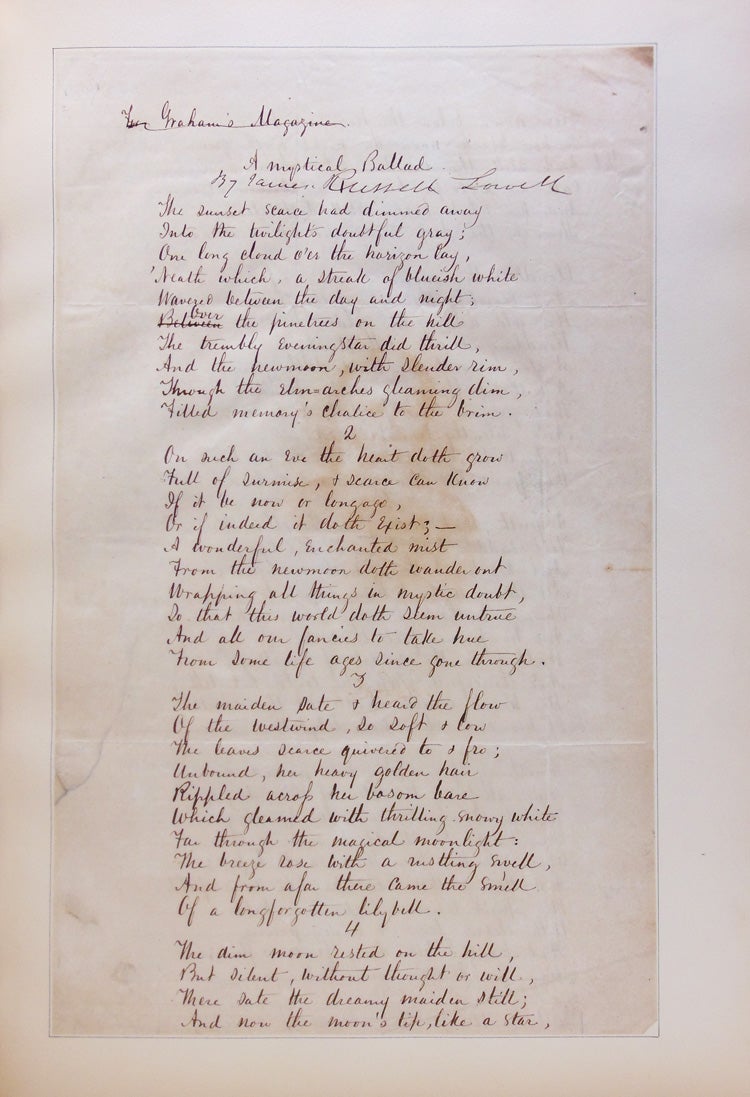 For Graham's Magazine.
A Mystical Ballad.
By James Russell Lowell
The sunset scarce had dimmed away
Into the twilight's doubtful gray;
One long cloud o'er the horizon lay,
'Neath which, a streak of blueish white
Wavered between the day and night;
Between over the pinetrees on the hill
The trembly Eveningstar did thrill,
And the newmoon, with slender rim,
Through the Elm=arches gleaming dim,
Filled memory's chalice to the brim.
2
On such an Eve the heart doth grow
Full of surmise, & scarce can know
If it be now or longago,
Or if indeed it doth Exist;—
A wonderful, Enchanted mist
From the newmoon doth wander out
Wrapping all things in mystic doubt,
So that this world doth seem untrue
And all our fancies to take hue
From some life ages since gone through.
3
The maiden sate & heard the flow
Of the westwind, so soft & low
The leaves scarce quivered to & fro;
Unbound, her heavy golden hair
Rippled across her bosom bare
Which gleamed with thrilling snowy white
Far through the magical moonlight:
The breeze rose with a rustling swell,
And from afar there came the smell
Of a longforgotten lilybell.
4
The dim moon rested on the hill,
But silent, without thought or will,
There sate the dreamy maiden still;
And now the moon's tip, like a star,